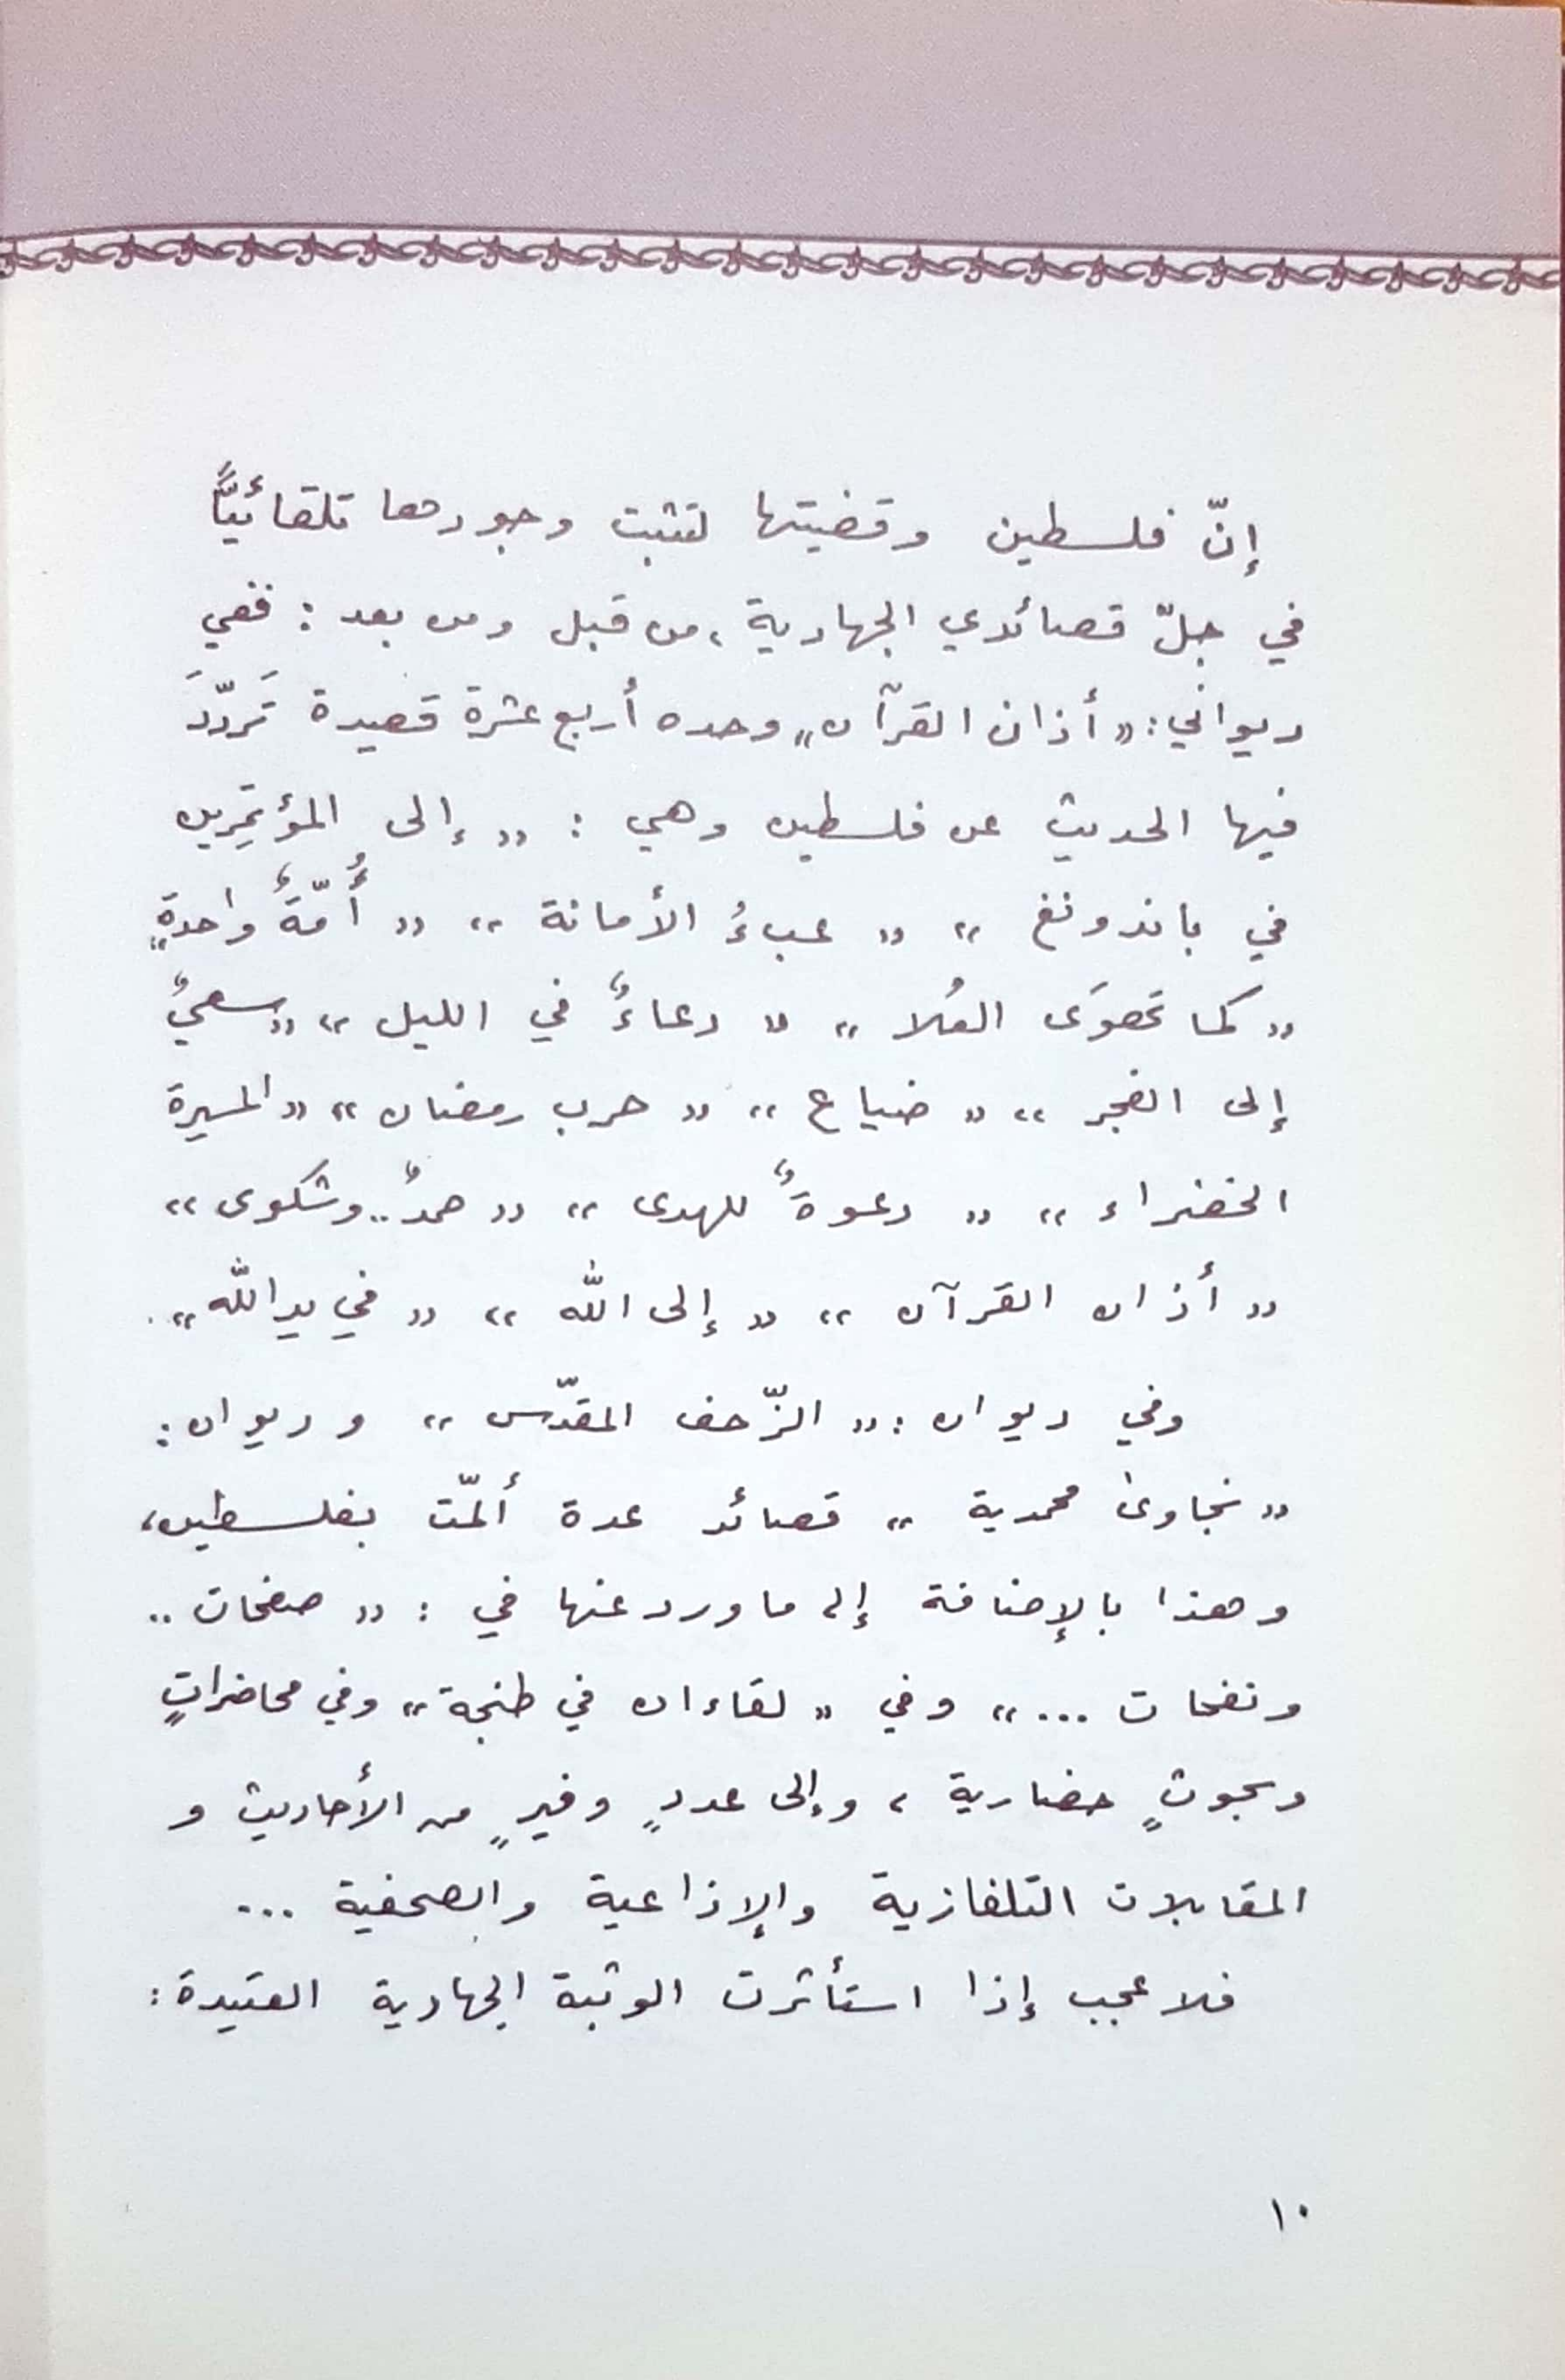 إنّ فلسطين وقضيتها لتثبت وجودها تلقائيًّا
في جلّ قصائدي الجهادية، من قبل ومن بعد : ففي
ديواني: «أذان القرآن» وحده أربع عشرة قصيدة تَردّدَ
فيها الحديث عن فلسطين وهي : « إلى المؤتمِرين
في باندونغ » « عبءُ الأمانة » « أُمّةٌ واحدةٍ»
« كما تهوَى العُلا » « دعاءٌ في الليل » « سعيٌ
إلى الفجر » « ضياع » « حرب رمضان » « المسيرة
الخضراء » « دعوةٌ للهدى » « حمدٌ .. وشكوى »
« أذان القرآن » « إلى الله » « في يد الله » .
وفي ديوان : « الزّحف المقدّس » و ديوان :
« نجاوىٰ محمدية » قصائد عدة ألمّت بفلسطين،
وهذا بالإضافة إلى ما ورد عنها في : « صفحات ..
ونفحات ... » وفي « لقاءان في طنجة » وفي محاضراتٍ
وبحوثٍ حضارية ، وإلى عددٍ وفيرٍ من الأحاديث و
المقابلات التلفازية والإذاعية والصحفية ...
فلا عجب إذا استأثرت الوثبة الجهادية العتيدة :
١٠